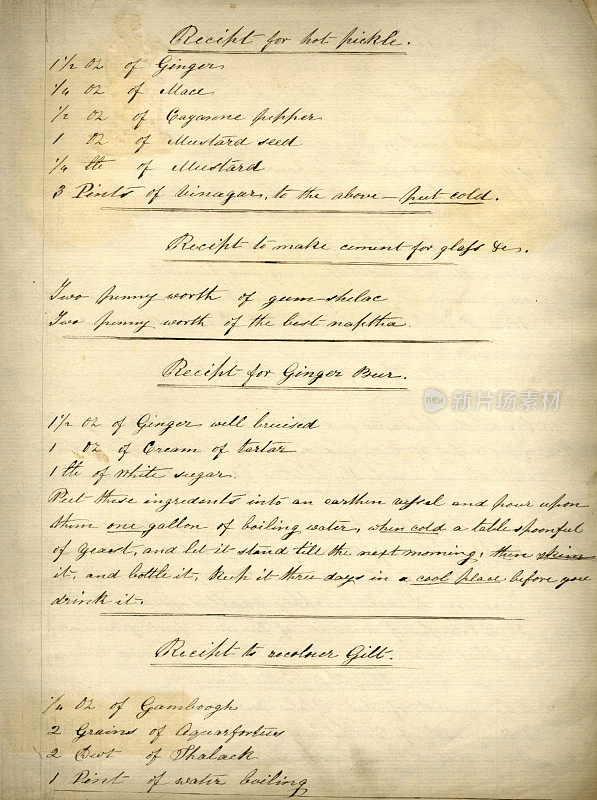 Recipt for hot pickle.
1½ oz of Ginger
¼ oz of Mace
½ oz of Cayanne pepper
1 oz of Mustard seed
¼ lb of Mustard
3 Pints of Vinagar, to the above – put cold.
Recipt to make cement for glass &c.
Two penny worth of gum shelac
Two penny worth of the best naptha
Recipt for Ginger Beer.
1½ oz of Ginger well bruised
1 oz of Cream of tartar
1 lb of White sugar.
Put these ingredants into an earthen vessel and pour upon
them one gallon of boiling water, when cold a table spoonful
of yeast, and let it stand till the next morning, then skim
it, and bottle it, keep it three days in a cool place before you
drink it.
Recipt to recolour Gilt.
¼ oz of Gamboogh
2 Grains of Aquafortus
2 of
1 Pint of water boiling
new 新片场素材